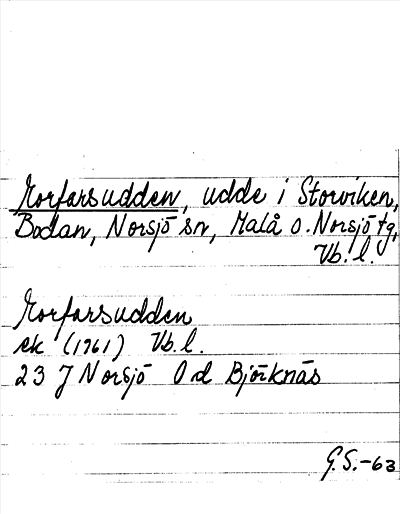 Morfarsudden, udde i Storviken,
Bodan, Norsjö sn, Malå o. Norsjö tg,
Vb. l.
Morfarsudden
ek (1961) Vb. l.
23 J Norsjö Od Björknäs
G.S.-63